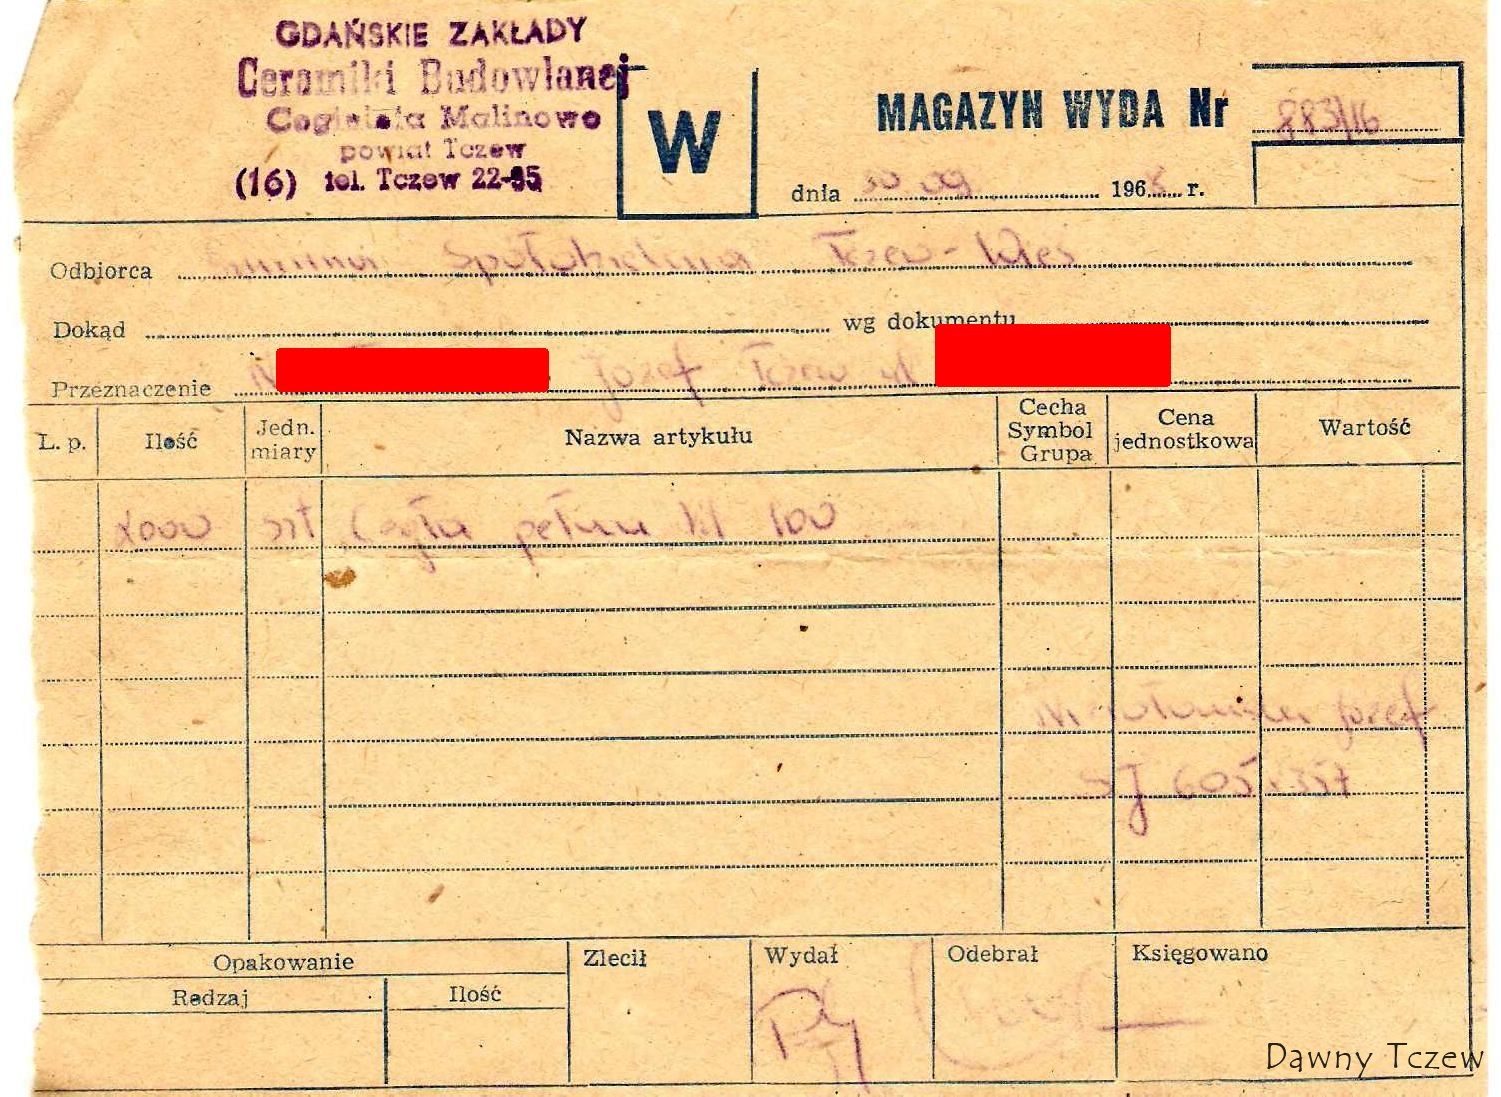 GDAŃSKIE ZAKŁADY
Ceramiki Budowlanej
Cegielnia Malinowo
powiat Tczew
(16) tel. Tczew 22-85
W
MAGAZYN WYDA Nr 883/16
dnia 30 09 1968 r.
Odbiorca Gminna Spółdzielnia Tczew-Wieś
Dokąd wg dokumentu
Przeznaczenie Józef Tczew ul
L. p. Ilość Jedn. miary Nazwa artykułu Cecha Symbol Grupa Cena jednostkowa Wartość
2000 szt Cegła pełna kl 100
Józef
Opakowanie Zlecił Wydał Odebrał Księgowano
Rodzaj Ilość
Dawny Tczew